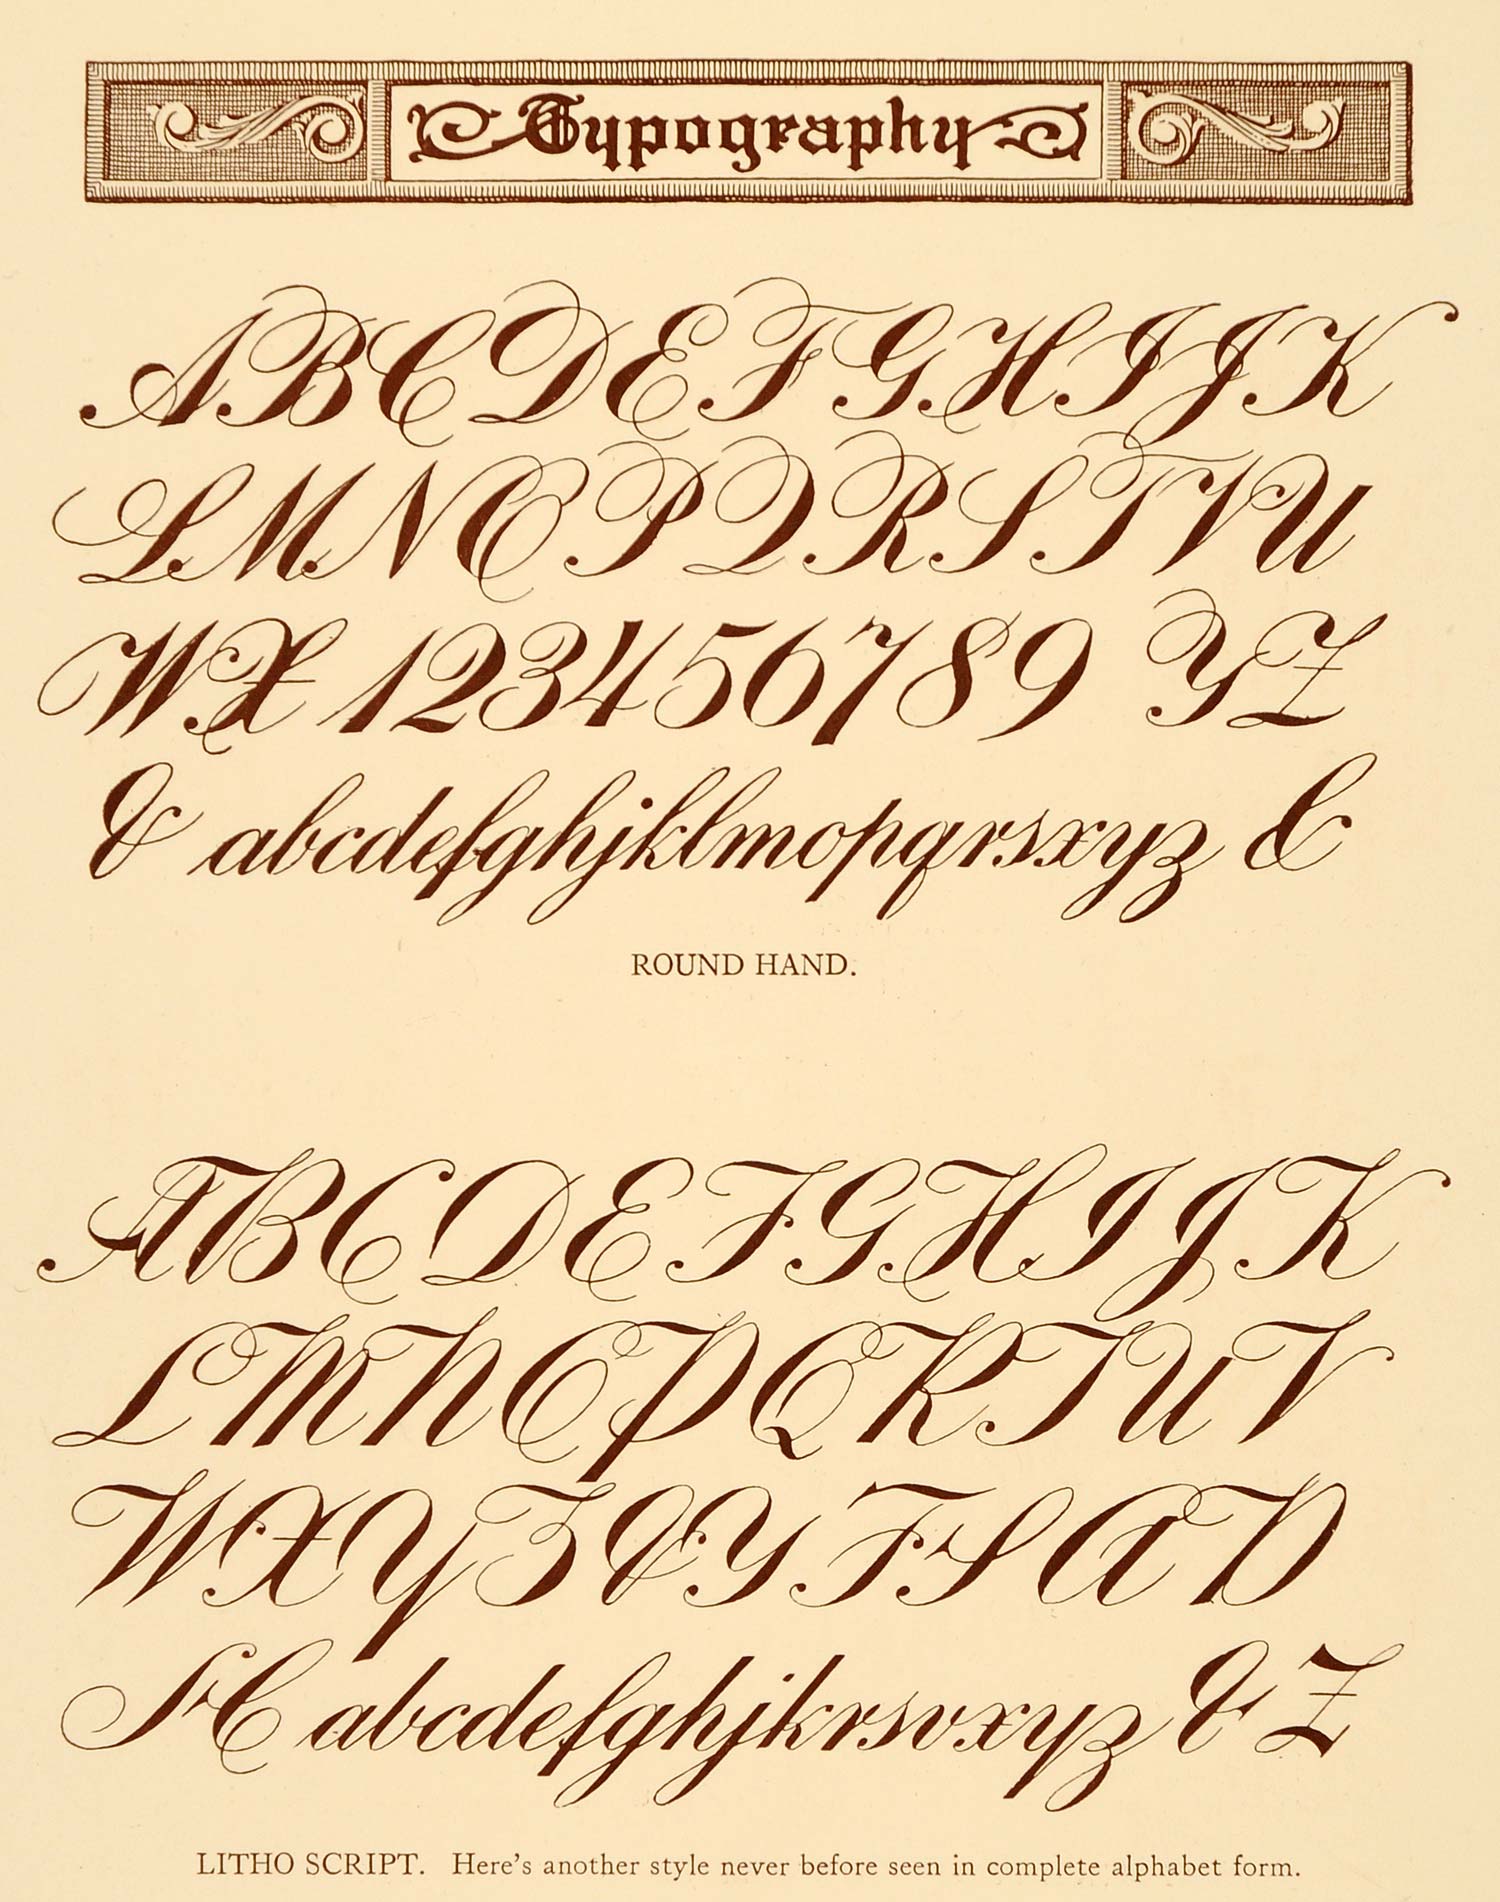 Typography
ABCDEFGHIJK
LMNOPQRSTVU
WX 123456789 YZ
& abcdefghjklmopqrsxyz &
ROUND HAND.
ABCDEFGHIJK
LMNOPQRTUV
WXYZ&YFSAD
HC abcdefghjkrsvxyz & Z
LITHO SCRIPT. Here's another style never before seen in complete alphabet form.